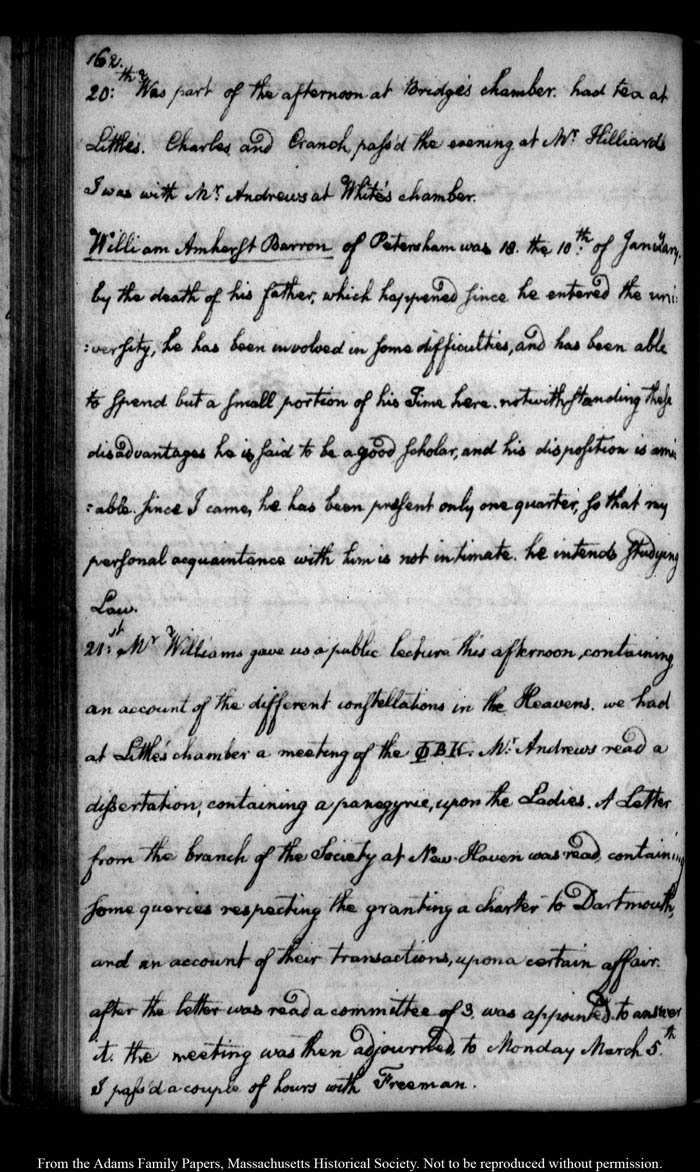 162.
20:th Was part of the afternoon at Bridge's chamber. had tea at
Little's. Charles, and Cranch, pass'd the evening at Mr. Hilliards
I was with Mr. Andrews at White's chamber.
William Amherst Barron of Petersham was 18. the 10th. of January.
by the death of his father, which happened since he entered the uni:
:versity, he has been involved in some difficulties, and has been able
to spend but a small portion of his Time here. notwithstanding these
disadvantages he is said to be a good scholar, and his disposition is ami:
:able. since I came, he has been present only one quarter, so that my
personal acquaintance with him is not intimate. he intends studying
Law.
21:st Mr Williams gave us a public lecture this afternoon, containing
an account of the different constellations in the Heavens. we had
at Little's chamber a meeting of the ΦBK. Mr. Andrews read a
dissertation, containing a panegyric, upon the Ladies. A Letter
from the branch of the Society at New-Haven was read, containing
some queries respecting the granting a charter to Dartmouth,
and an account of their transactions, upon a certain affair.
after the letter was read a committee of 3. was appointed to answer
it. the meeting was then adjourned, to Monday March 5th
I pass'd a couple of hours with Freeman.
From the Adams Family Papers, Massachusetts Historical Society. Not to be reproduced without permission.